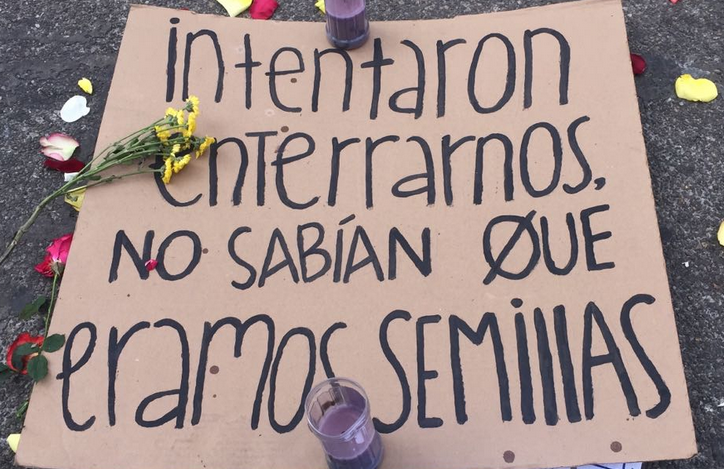 intentaron
enterrarnos,
NO SABÍAN QUE
eramos SEMillAS